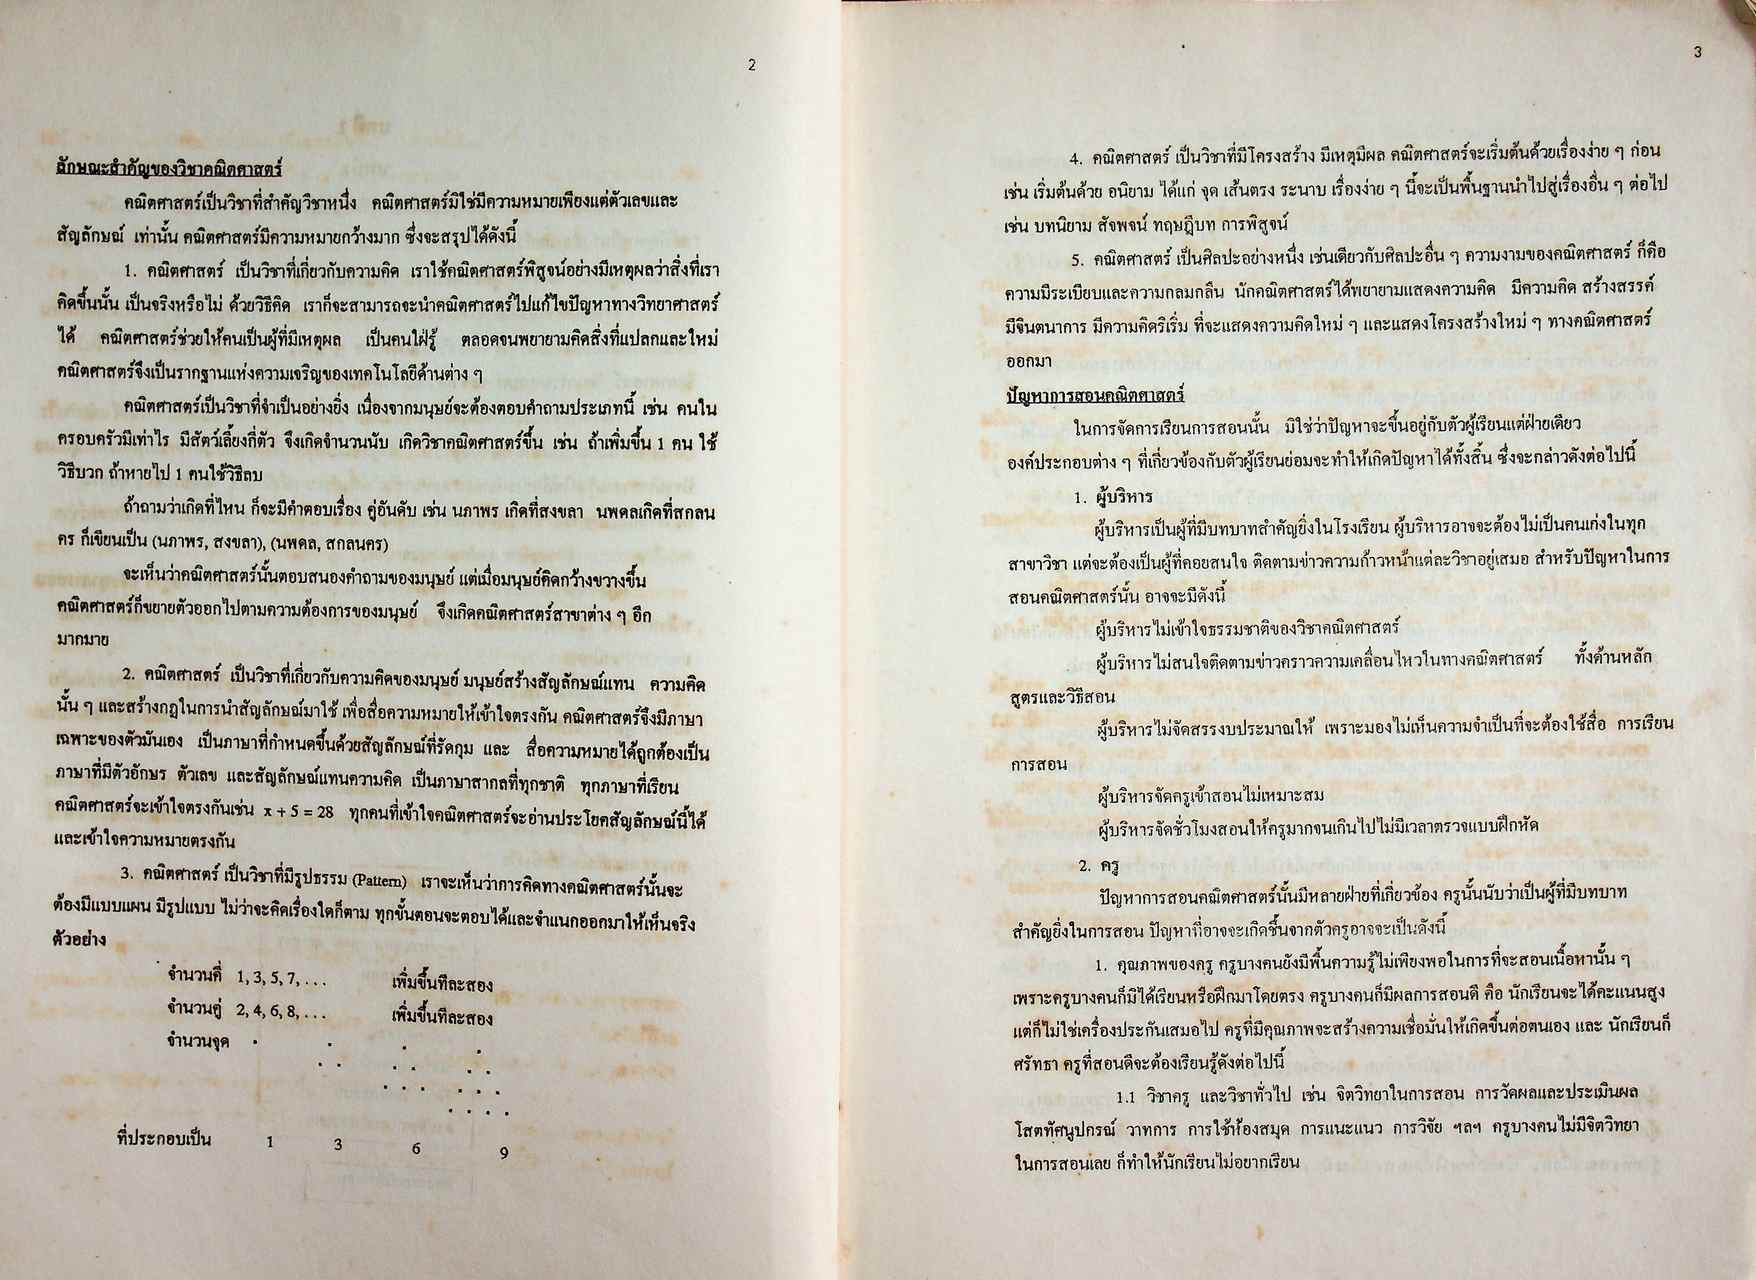 2
ลักษณะสำคัญของวิชาคณิตศาสตร์
คณิตศาสตร์เป็นวิชาที่สำคัญวิชาหนึ่ง คณิตศาสตร์มิใช่มีความหมายเพียงแต่ตัวเลขและ
สัญลักษณ์ เท่านั้น คณิตศาสตร์มีความหมายกว้างมาก ซึ่งจะสรุปได้ดังนี้
1. คณิตศาสตร์ เป็นวิชาที่เกี่ยวกับความคิด เราใช้คณิตศาสตร์พิสูจน์อย่างมีเหตุผลว่าสิ่งที่เรา
คิดขึ้นนั้น เป็นจริงหรือไม่ ด้วยวิธีคิด เราก็จะสามารถจะนำคณิตศาสตร์ไปแก้ไขปัญหาทางวิทยาศาสตร์
ได้ คณิตศาสตร์ช่วยให้คนเป็นผู้ที่มีเหตุผล เป็นคนใฝ่รู้ ตลอดจนพยายามคิดสิ่งที่แปลกและใหม่
คณิตศาสตร์จึงเป็นรากฐานแห่งความเจริญของเทคโนโลยีด้านต่าง ๆ
คณิตศาสตร์เป็นวิชาที่จำเป็นอย่างยิ่ง เนื่องจากมนุษย์จะต้องตอบคำถามประเภทนี้ เช่น คนใน
ครอบครัวมีเท่าไร มีสัตว์เลี้ยงกี่ตัว จึงเกิดจำนวนนับ เกิดวิชาคณิตศาสตร์ขึ้น เช่น ถ้าเพิ่มขึ้น 1 คน ใช้
วิธีบวก ถ้าหายไป 1 คนใช้วิธีลบ
ถ้าถามว่าเกิดที่ไหน ก็จะมีคำตอบเรื่อง คู่อันดับ เช่น นภาพร เกิดที่สงขลา นพดลเกิดที่สกลน
คร ก็เขียนเป็น (นภาพร, สงขลา), (นพดล, สกลนคร)
จะเห็นว่าคณิตศาสตร์นั้นตอบสนองคำถามของมนุษย์ แต่เมื่อมนุษย์คิดกว้างขวางขึ้น
คณิตศาสตร์ก็ขยายตัวออกไปตามความต้องการของมนุษย์ จึงเกิดคณิตศาสตร์สาขาต่าง ๆ อีก
มากมาย
2. คณิตศาสตร์ เป็นวิชาที่เกี่ยวกับความคิดของมนุษย์ มนุษย์สร้างสัญลักษณ์แทน ความคิด
นั้น ๆ และสร้างกฎในการนำสัญลักษณ์มาใช้ เพื่อสื่อความหมายให้เข้าใจตรงกัน คณิตศาสตร์จึงมีภาษา
เฉพาะของตัวมันเอง เป็นภาษาที่กำหนดขึ้นด้วยสัญลักษณ์ที่รัดกุม และ สื่อความหมายได้ถูกต้องเป็น
ภาษาที่มีตัวอักษร ตัวเลข และสัญลักษณ์แทนความคิด เป็นภาษาสากลที่ทุกชาติ ทุกภาษาที่เรียน
คณิตศาสตร์จะเข้าใจตรงกันเช่น x + 5 = 28 ทุกคนที่เข้าใจคณิตศาสตร์จะอ่านประโยคสัญลักษณ์นี้ได้
และเข้าใจความหมายตรงกัน
3. คณิตศาสตร์ เป็นวิชาที่มีรูปธรรม (Pattern) เราจะเห็นว่าการคิดทางคณิตศาสตร์นั้นจะ
ต้องมีแบบแผน มีรูปแบบ ไม่ว่าจะคิดเรื่องใดก็ตาม ทุกขั้นตอนจะตอบได้และจำแนกออกมาให้เห็นจริง
ตัวอย่าง
จำนวนคี่ 1, 3, 5, 7, . . . เพิ่มขึ้นทีละสอง
จำนวนคู่ 2, 4, 6, 8, . . . เพิ่มขึ้นทีละสอง
จำนวนจุด
ที่ประกอบเป็น 1 3 6 9
3
4. คณิตศาสตร์ เป็นวิชาที่มีโครงสร้าง มีเหตุมีผล คณิตศาสตร์จะเริ่มต้นด้วยเรื่องง่าย ๆ ก่อน
เช่น เริ่มต้นด้วย อนิยาม ได้แก่ จุด เส้นตรง ระนาบ เรื่องง่าย ๆ นี้จะเป็นพื้นฐานนำไปสู่เรื่องอื่น ๆ ต่อไป
เช่น บทนิยาม สัจพจน์ ทฤษฎีบท การพิสูจน์
5. คณิตศาสตร์ เป็นศิลปะอย่างหนึ่ง เช่นเดียวกับศิลปะอื่น ๆ ความงามของคณิตศาสตร์ ก็คือ
ความมีระเบียบและความกลมกลืน นักคณิตศาสตร์ได้พยายามแสดงความคิด มีความคิด สร้างสรรค์
มีจินตนาการ มีความคิดริเริ่ม ที่จะแสดงความคิดใหม่ ๆ และแสดงโครงสร้างใหม่ ๆ ทางคณิตศาสตร์
ออกมา
ปัญหาการสอนคณิตศาสตร์
ในการจัดการเรียนการสอนนั้น มิใช่ว่าปัญหาจะขึ้นอยู่กับตัวผู้เรียนแต่ฝ่ายเดียว
องค์ประกอบต่าง ๆ ที่เกี่ยวข้องกับตัวผู้เรียนย่อมจะทำให้เกิดปัญหาได้ทั้งสิ้น ซึ่งจะกล่าวดังต่อไปนี้
1. ผู้บริหาร
ผู้บริหารเป็นผู้ที่มีบทบาทสำคัญยิ่งในโรงเรียน ผู้บริหารอาจจะต้องไม่เป็นคนเก่งในทุก
สาขาวิชา แต่จะต้องเป็นผู้ที่คอยสนใจ ติดตามข่าวความก้าวหน้าแต่ละวิชาอยู่เสมอ สำหรับปัญหาในการ
สอนคณิตศาสตร์นั้น อาจจะมีดังนี้
ผู้บริหารไม่เข้าใจธรรมชาติของวิชาคณิตศาสตร์
ผู้บริหารไม่สนใจติดตามข่าวคราวความเคลื่อนไหวในทางคณิตศาสตร์ ทั้งด้านหลัก
สูตรและวิธีสอน
ผู้บริหารไม่จัดสรรงบประมาณให้ เพราะมองไม่เห็นความจำเป็นที่จะต้องใช้สื่อ การเรียน
การสอน
ผู้บริหารจัดครูเข้าสอนไม่เหมาะสม
ผู้บริหารจัดชั่วโมงสอนให้ครูมากจนเกินไปไม่มีเวลาตรวจแบบฝึกหัด
2. ครู
ปัญหาการสอนคณิตศาสตร์นั้นมีหลายฝ่ายที่เกี่ยวข้อง ครูนั้นนับว่าเป็นผู้ที่มีบทบาท
สำคัญยิ่งในการสอน ปัญหาที่อาจจะเกิดขึ้นจากตัวครูอาจจะเป็นดังนี้
1. คุณภาพของครู ครูบางคนยังมีพื้นความรู้ไม่เพียงพอในการที่จะสอนเนื้อหานั้น ๆ
เพราะครูบางคนก็มิได้เรียนหรือฝึกมาโดยตรง ครูบางคนก็มีผลการสอนดี คือ นักเรียนจะได้คะแนนสูง
แต่ก็ไม่ใช่เครื่องประกันเสมอไป ครูที่มีคุณภาพจะสร้างความเชื่อมั่นให้เกิดขึ้นต่อตนเอง และ นักเรียนก็
ศรัทธา ครูที่สอนดีจะต้องเรียนรู้ดังต่อไปนี้
1.1 วิชาครู และวิชาทั่วไป เช่น จิตวิทยาในการสอน การวัดผลและประเมินผล
โสตทัศนูปกรณ์ วาทการ การใช้ห้องสมุด การแนะแนว การวิจัย ฯลฯ ครูบางคนไม่มีจิตวิทยา
ในการสอนเลย ก็ทำให้นักเรียนไม่อยากเรียน